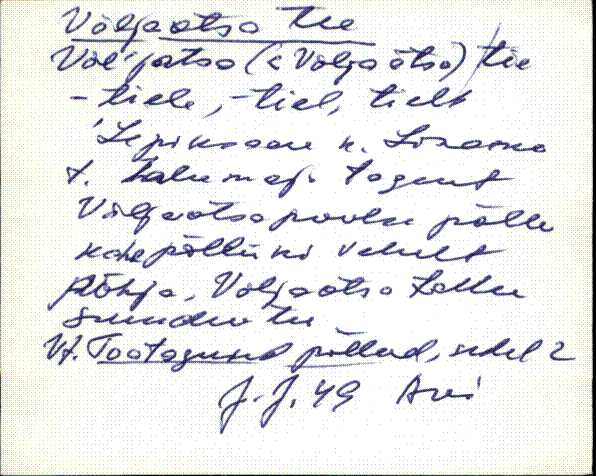 Väljaotsa tee
Väl'jatsa (< Väljaotsa) tee
- tiele, -tiel, tielt
'Lepiksaare k.
t. talu maja tagant
Väljaotsapoolse põllu
kahe põllu ni vahelt
põhja, Väljaotsa tallu
suunduv tee
Vt. Tootaguse põllud, sedel 2
J. J. 49